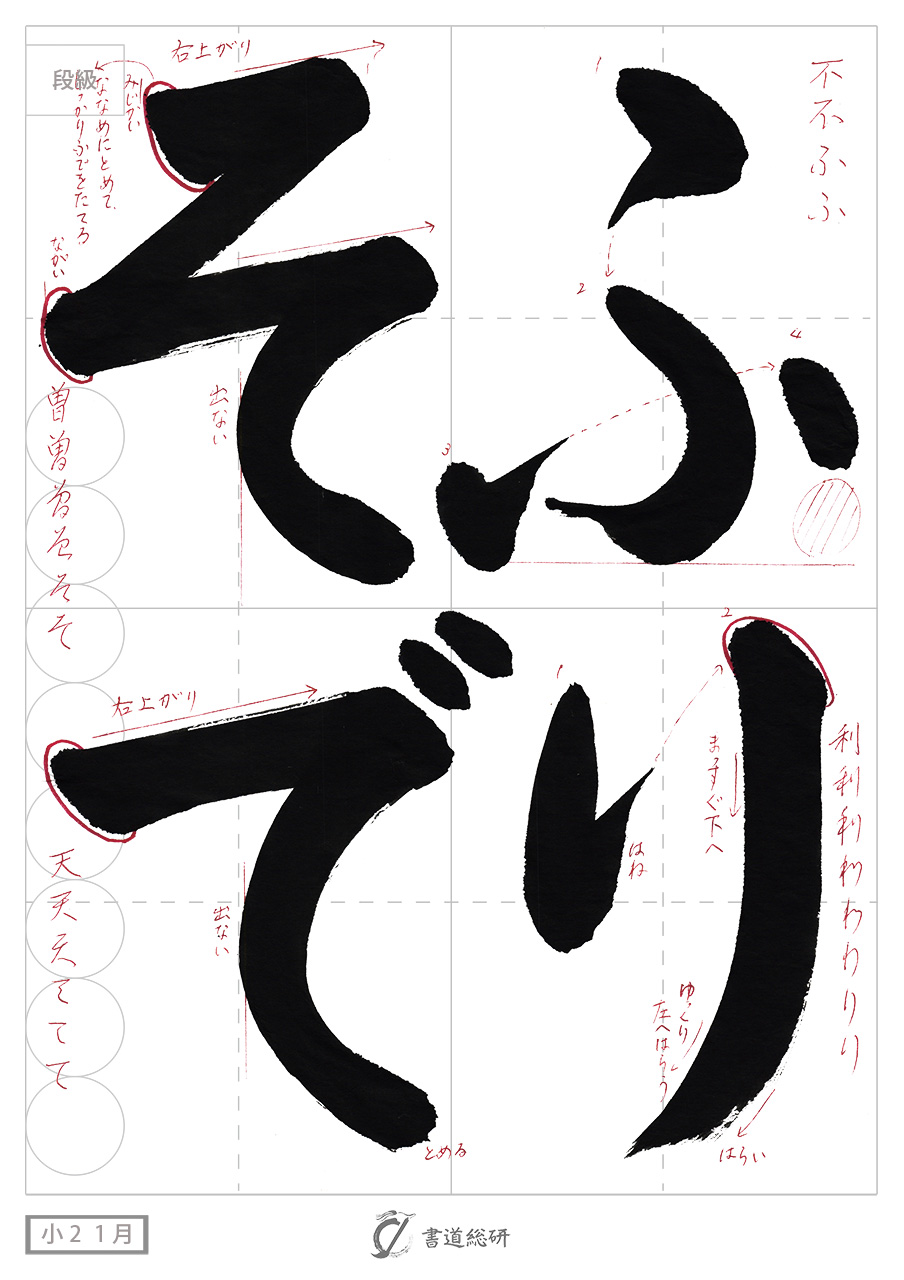 ふり
そで
不不ふふ
1
2
3
4
右上がり
みじかい
ななめにとめて、
しっかりふでをたてる
ながい
出ない
曽曽曽そそそ
段級
1
2
はね
まっすぐ下へ
ゆっくり
左へはらう
はらい
利利利わわわりり
右上がり
出ない
とめる
天天天ててて
小2 1月
書道総研